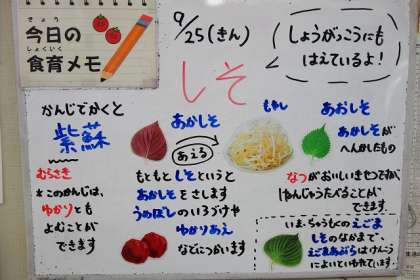 きょう
今日の
しょくいく
食育メモ
9/25(きん)
しょうがっこうにも
はえているよ!
しそ
かんじでかくと
紫蘇
むらさき
*このかんじは、
ゆかりとも
よむことが
できます
あかしそ
あえる
もやし
あおしそ
あかしそが
へんかしたもの
もともとしそというと
あかしそをさします
うめぼしのいろづけや
ゆかりあえ
などにつかいます
なつがおいしいきせつですが
1ねんじゅうたべることが
できます。
いま・ちゅうもくのえごま
しそのなかまで、
えごまあぶらはけんこう
によいといわれています